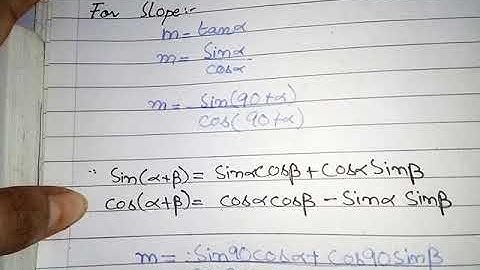 For Slope:-
m = tanα
m = Sinα / cosα
m = Sin(90+α) / cos(90+α)
∵ Sin(α+β) = Sinαcosβ + CosαSinβ
cos(α+β) = cosαcosβ - Sinα Sinβ
m = Sin90cosα + cos90sinβ